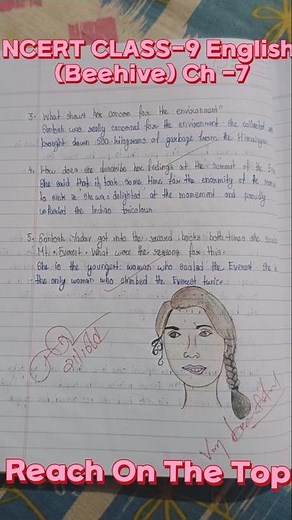 NCERT CLASS-9 English
(Beehive) Ch -7
3. What shows her concern for the environment?
Santosh was really concerned for the environment. she collected and
brought down 500 kilograms of garbage from the Himalayas
4. How does she describe her feelings at the summit of the
She said that it took some time for the enormity of the moment
to sink in she was delighted at the moment and proudly
unfurled the Indian tricolour.
5. Santosh Yadav got into the record books both times she scaled
Mt. Everest. What were the reasons for this.
She is the youngest woman who scaled the Everest. she is
the only woman who climbed the Everest twice.
Very Beautiful
Reach On The Top